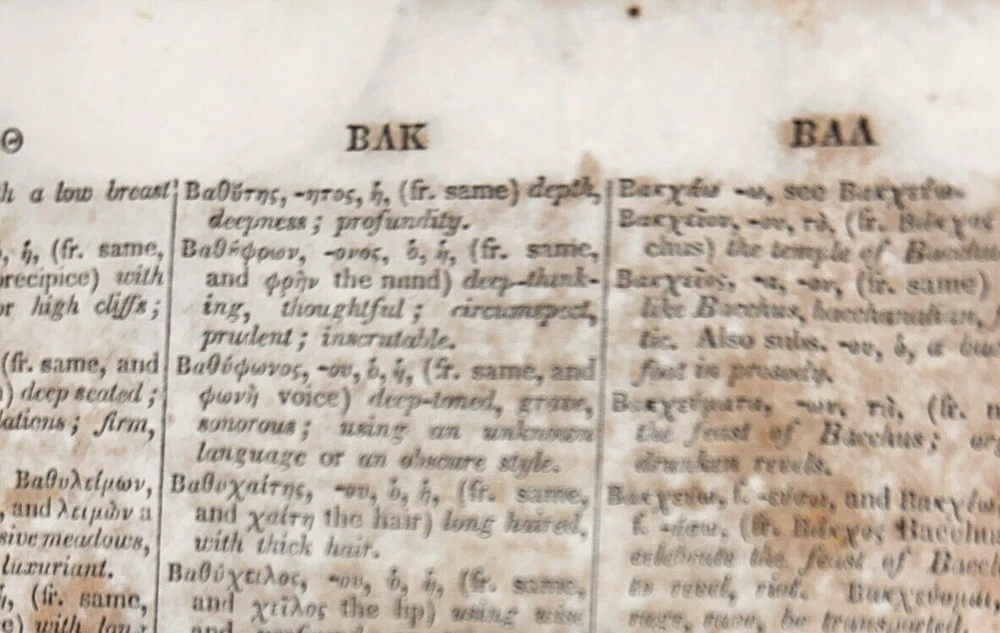 Θ
h a low breast
, ἡ, (fr. same,
precipice) with
or high cliffs;
(fr. same, and
) deep seated;
dations; firm,
Βαθυλείμων,
, and λειμὼν a
sive meadows,
luxuriant.
(fr. same,
e) with long
ΒΑΚ
Βαθύτης, -ητος, ἡ, (fr. same) depth,
deepness; profundity.
Βαθύφρων, -ονος, ὁ, ἡ, (fr. same,
and φρὴν the mind) deep-think-
ing, thoughtful; circumspect,
prudent; inscrutable.
Βαθύφωνος, -ου, ὁ, ἡ, (fr. same, and
φωνὴ voice) deep-toned, grave,
sonorous; using an unknown
language or an obscure style.
Βαθυχαίτης, -ου, ὁ, ἡ, (fr. same,
and χαίτη the hair) long haired,
with thick hair.
Βαθύχειλος, -ου, ὁ, ἡ, (fr. same,
and χεῖλος the lip) using
and
ΒΑΛ
Βακχάω -ω, see Βακχεύω.
Βακχεῖον, -ου, τὸ, (fr. Βάκχος
chus) the temple of Bacchus
Βακχεῖος, -α, -ον, (fr. same)
like Bacchus, bacchanalian,
tic. Also subs. -ου, ὁ, a bac
foot in prosody.
Βακχεύματα, -ων, τὰ, (fr.
the feast of Bacchus; or
drunken revels.
Βακχεύω, f. -εύσω, and
f. -ήσω, (fr. Βάκχος Bacchus
celebrate the feast of Bacch
to revel, riot. Βακχεύομαι,
rage, rave, be transported.